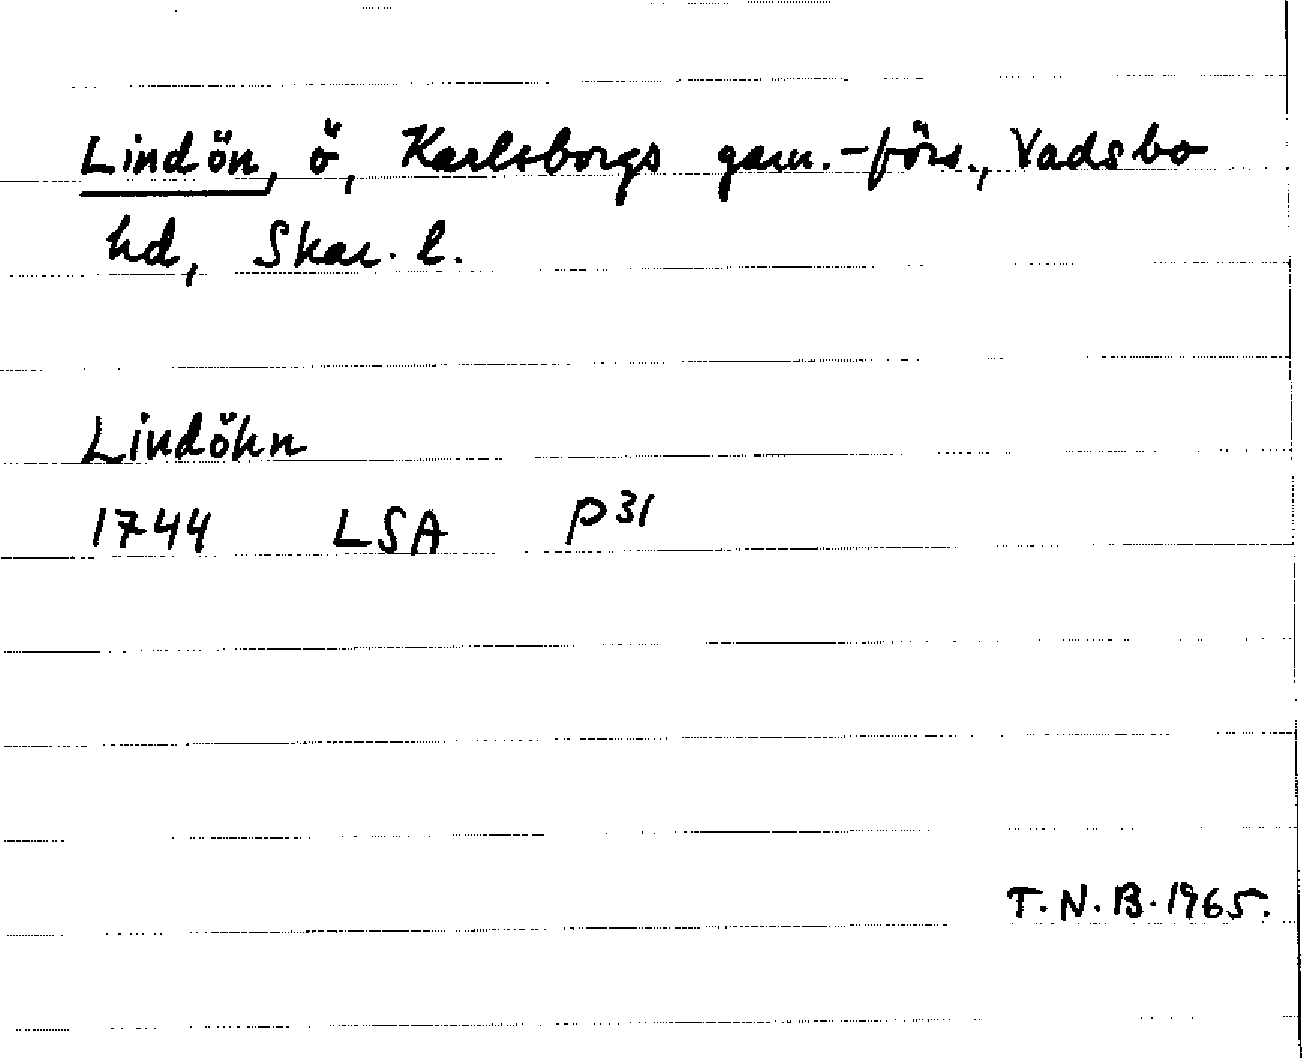 Lindön, ö, Karlsborgs garn.-förs., Vadsbo
hd, Skar. l.
Lindöhn
1744 LSA P31
T.N.B. 1965.